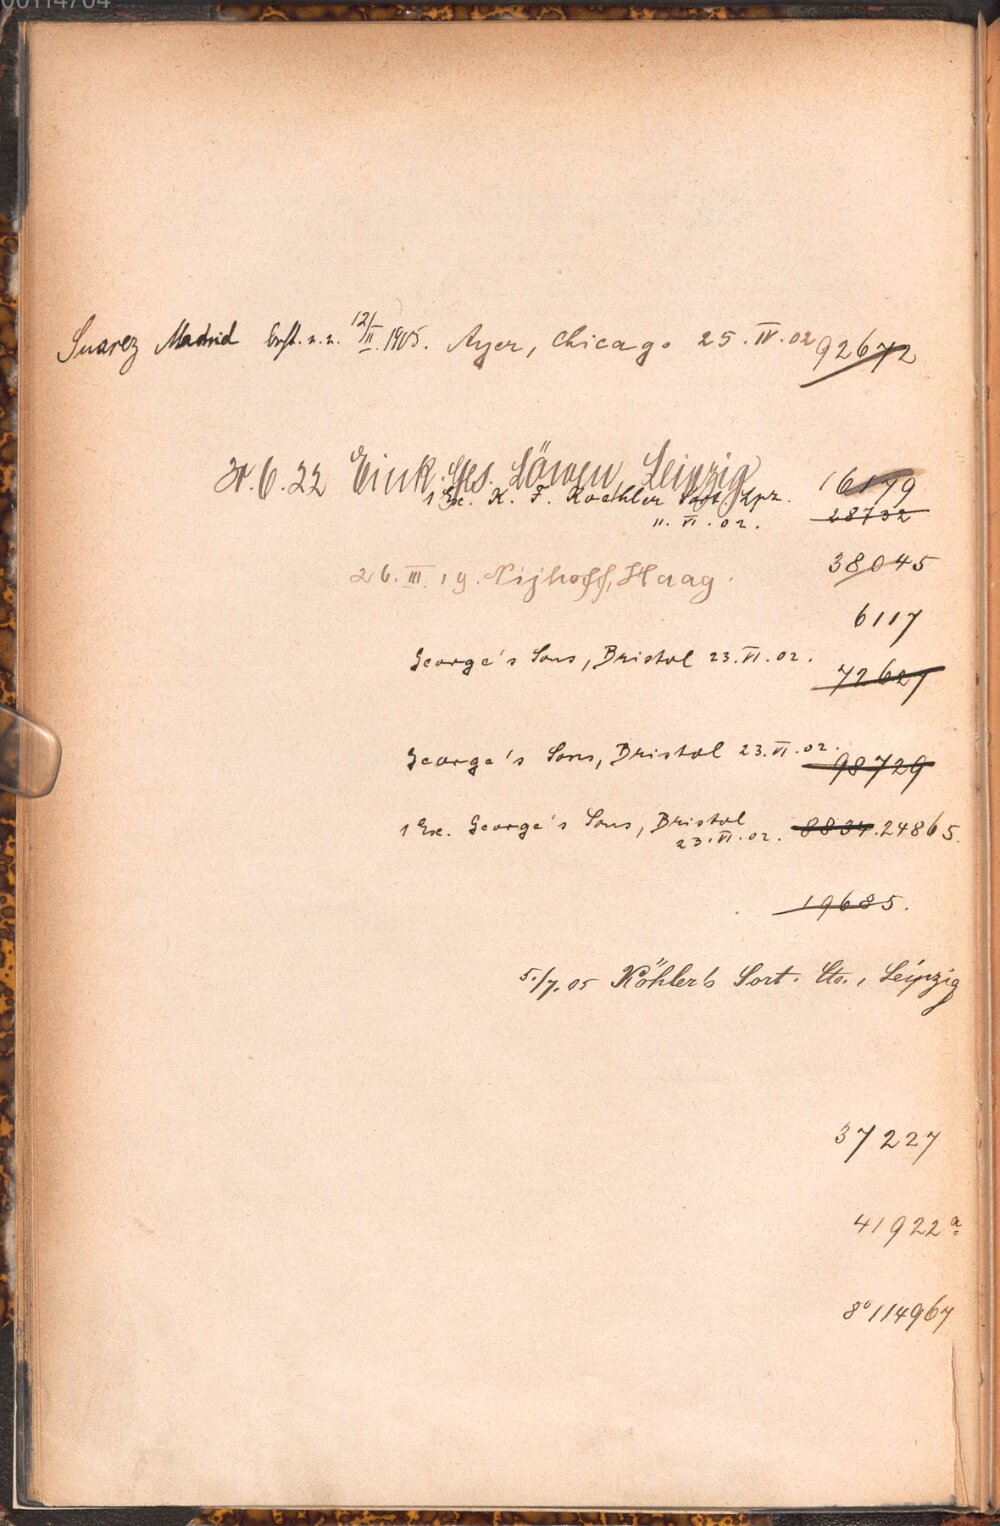 00114704
Suarez Madrid Erst. n. n. 12/II. 1905. Ayer, Chicago 25. IV. 02 92672
30.6.22 Eink. Ges. Löwen, Leipzig 16179
1 Ex. K. F. Koehler Sort. Lpz. 28732
11. VI. 02.
26. III. 19. Nijhoff, Haag. 38045
6117
George's Sons, Bristol 23. VI. 02. 72627
George's Sons, Bristol 23. VI. 02. 98729
1 Ex. George's Sons, Bristol 8834. 24865.
23. VI. 02.
19685.
5./7. 05 Köhlers Sort. Cto., Leipzig
37227
41922 a
8° 114967